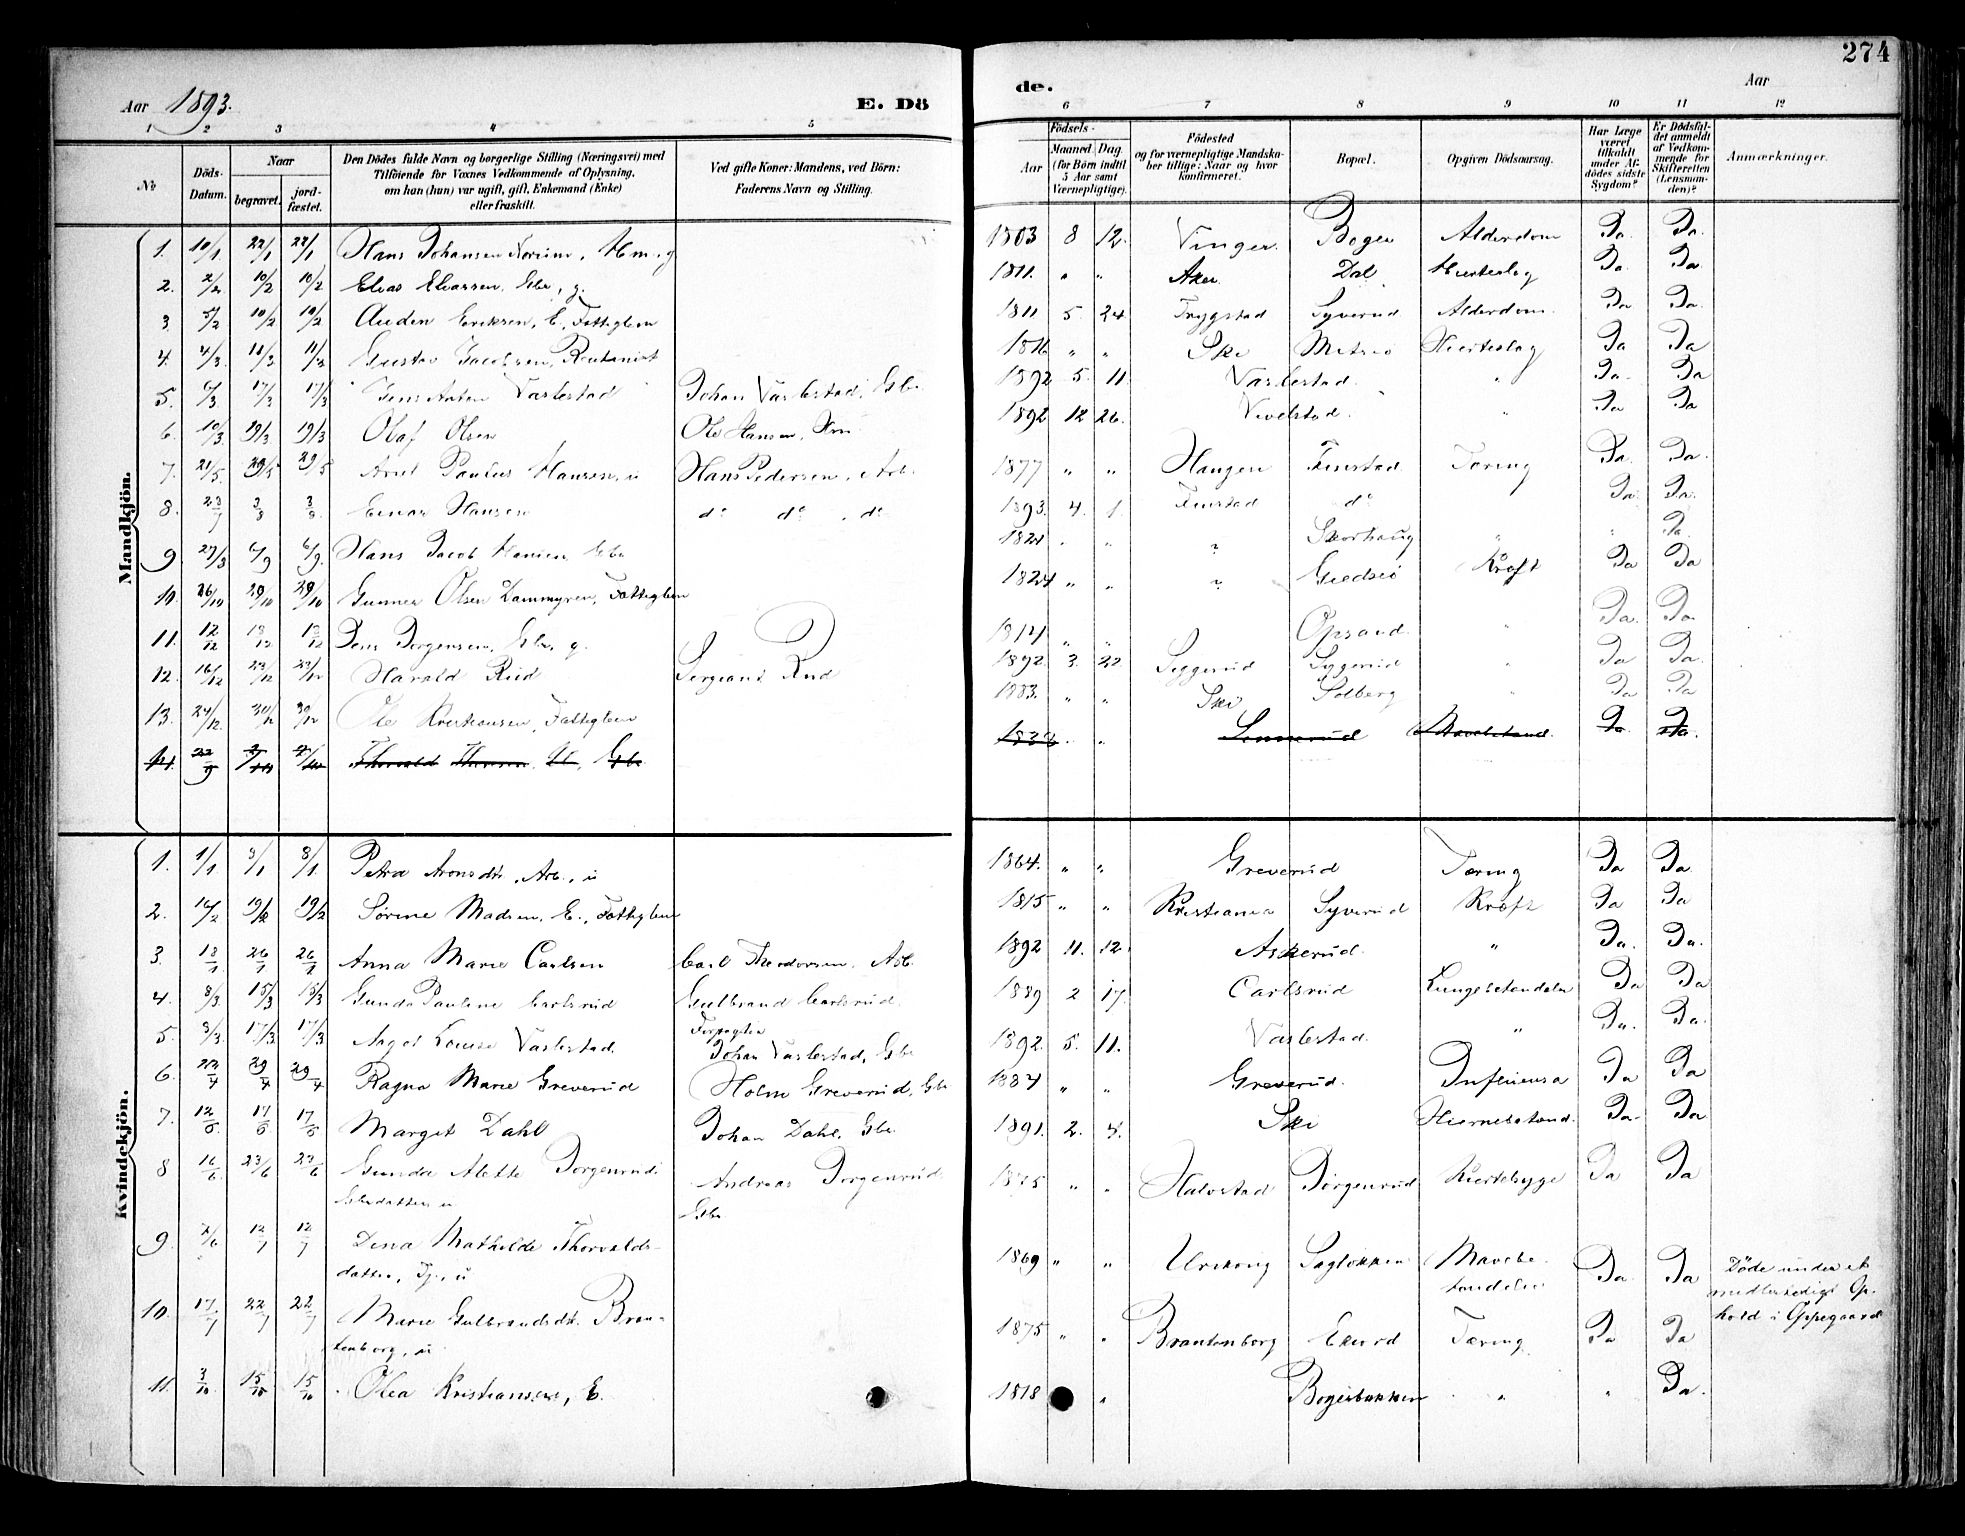 274
Aar 1893.
E. Dö
de.
Aar
1 2 3 4 5
6 7 8 9 10 11 12
No
Döds-Datum.
Naar
begravet.
jord-fæstet.
Den Dödes fulde Navn og borgerlige Stilling (Næringsvei) med
Tilföiende for Voxnes Vedkommende af Oplysning,
om han (hun) var ugift, gift, Enkemand (Enke)
eller fraskilt.
Ved gifte Koner: Mandens, ved Börn:
Faderens Navn og Stilling.
Födsels-
Aar
Maaned. Dag.
(for Börn indtil
5 Aar samt
Værnepligtige).
Födested
og for værnepligtige Mandska-
ber tillige: Naar og hvor
konfirmeret.
Bopæl.
Opgiven Dödsaarsag.
Har Læge
været
tilkaldt
under Af-
dödes sidste
Sygdom?
Er Dödsfal-
det anmeldt
af Vedkom-
mende for
Skifteretten
(Lensman-
den)?
Anmærkninger.
Mandkjön.
1. 10/1 22/1 22/1 Hans Johansen, Hm., g 1803 8 12. Vinger Boger Alderdom Ja. Ja.
2. 2/2 10/2 10/2 Elias Eliassen, Gbr, g. 1811. " " Aker Dal Hierteslag Ja. Ja
3. 5/2 10/2 10/2 Auden Eriksen, E., Fattiglem 1811 5. 24 Trygstad Syverud Alderdom. Ja Ja
4. 4/3 11/3 11/3 Gustav Jacobsen, 1816 " " Ski Hierteslag Ja Ja
5. 6/3 17/3 17/3 Jens Anton Vaslestad Johan Vaslestad, Gbr 1892 5. 11. Vaslestad. " Ja. Ja
6. 10/3 19/3 19/3 Olaf Olsen Ole Hansen, 1892 12 26. Vevelstad. " Ja Ja
7. 21/5 29/5 29/5 Paulus Hansen, u Hans Pedersen, Arb. 1877 " " Haugen Finstad Tæring Ja. Ja.
8. 23/7 3/8 3/8 Einar Hansen do do, do 1893. 4. 1. Finstad do Ja. Ja.
9. 27/8 6/9 6/9. Hans Jacob Hansen, Gbr 1821 " " ? Skorhaug " " Ja.
10. 26/10 29/10 29/10 Gunner Olsen Dammyren, Fattiglem 1824 " " ? Gjedsiö Kræft Ja Ja
11. 12/12 18/12 18/12 Jens Jörgensen, Gbr, g. " " Opsand. " Ja. Ja
12. 16/12 23/12 23/12 Harald Rud Sergeant Rud 1892 3. 22 Siggerud Syggerud " Ja Ja.
13. 24/12 30/12 30/12 Ole Kristiansen, Fattiglem 1883. " " Ski Solberg " Ja Ja
14. 22/9 7/10 7/10 Thorvald Gbr. " Ja. Ja.
Kvindekjön.
1. 1/1 8/1 8/1 Petra Aronsdt., Arb., u 1864. " " Greverud Tæring Ja Ja.
2. 14/2 19/2 19/2 Sörine Madsen, E., Fattiglem 1815 " " Kristiania Syverud Kræft Ja Ja
3. 18/1. 26/1 26/1 Anna Marie Carlsen Carl Theodorsen, Arb. 1892 11. 12. Askerud. " Ja. Ja.
4. 8/3. 15/3 15/3 Gunda Pauline Carlsrud Gulbrand Carlsrud. 1889 2 17. Carlsrud Lungebetændelse Ja Ja
Forpagter
5. 8/3. 17/3 17/3 Aagot Louise Vaslestad. Johan Vaslestad, Gbr 1892. 5. 11. Vaslestad. " Ja. Ja.
6. 22/4 29/4 29/4 Ragna Marie Greverud Holm Greverud, Gbr 1884 " " Greverud. Influensa Ja Ja
7. 12/5 17/5 17/5 Margit Dahl Johan Dahl, Gbr. 1891. 2. 4. Ski Hiernebetænd. Ja. Ja
8 16/6. 23/6 23/6 Gunda Alette Jörgenrud Andreas Jörgenrud. 1875 " " Halvstad Jörgenrud Hiertesyge Ja Ja
Gbrdatter, u Gbr
9. 7/6 12/7 12/7 Dina Mathilde Thorvalds- 1869 " " Urskoug Saglökken Mavebe- Ja. Ja Döde under et
datter, Tj., u tændelse midlertidigt Op-
hold i Oppegaard
10. 17/7 22/7 22/7 Marie Gulbrandsdt. Bran- 1875 " " Brantenborg Ekerud Tæring Ja Ja
tenborg, u.
11. 3/10 15/10 15/10 Olea Kristiansen, E. 1818 " Bogerbakken " " Ja.